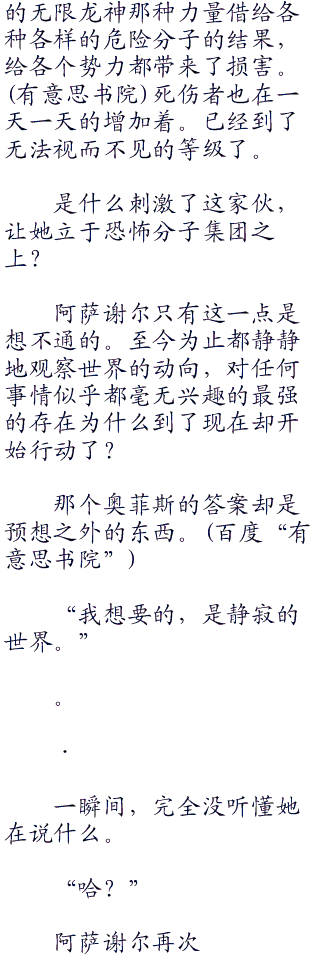 的无限龙神那种力量借给各
种各样的危险分子的结果，
给各个势力都带来了损害。
(有意思书院)死伤者也在一
天一天的增加着。已经到了
无法视而不见的等级了。
是什么刺激了这家伙，
让她立于恐怖分子集团之
上？
阿萨谢尔只有这一点是
想不通的。至今为止都静静
地观察世界的动向，对任何
事情似乎都毫无兴趣的最强
的存在为什么到了现在却开
始行动了？
那个奥菲斯的答案却是
预想之外的东西。(百度“有
意思书院”)
“我想要的，是静寂的
世界。”
。
．
一瞬间，完全没听懂她
在说什么。
“哈？”
阿萨谢尔再次